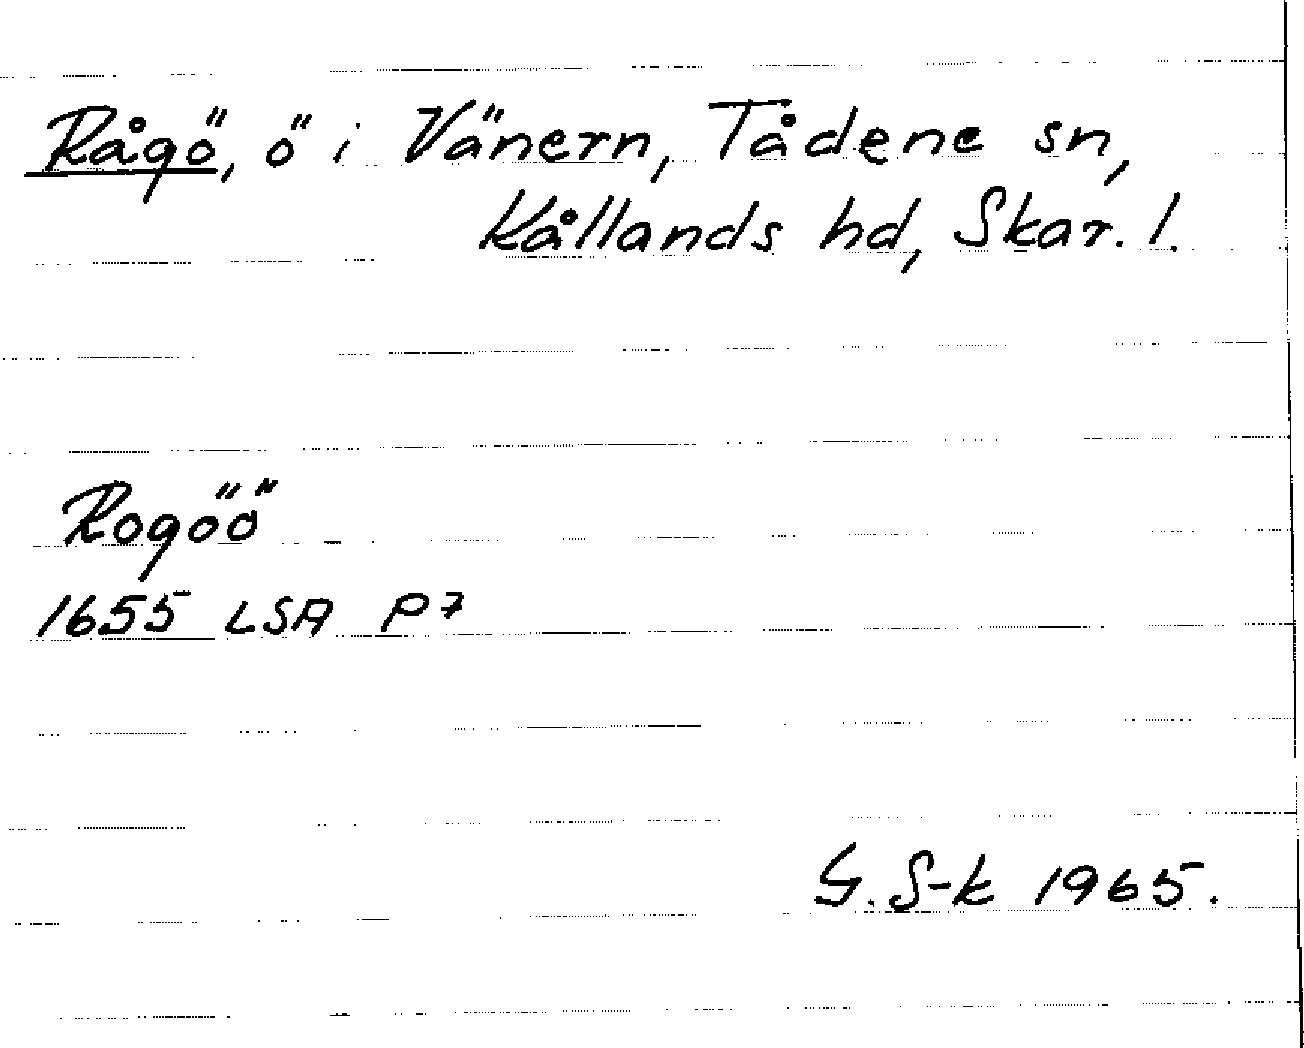 Rågö, ö i Vänern, Tådene sn,
Kållands hd, Skar. l.
Rogöö
1655 LSA P7
G. S-k 1965.